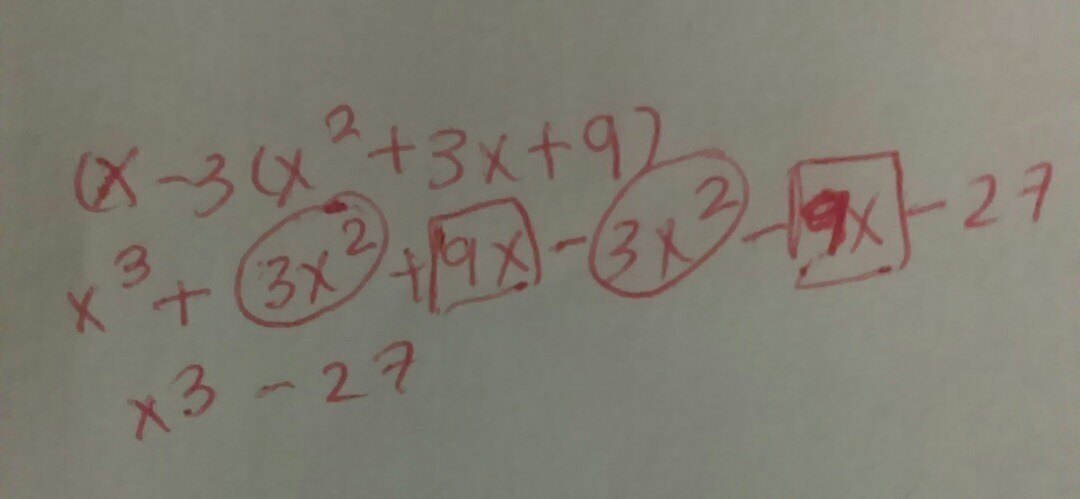 (x-3(x²+3x+9)
x³+3x²+9x-3x²-9x-27
x3-27